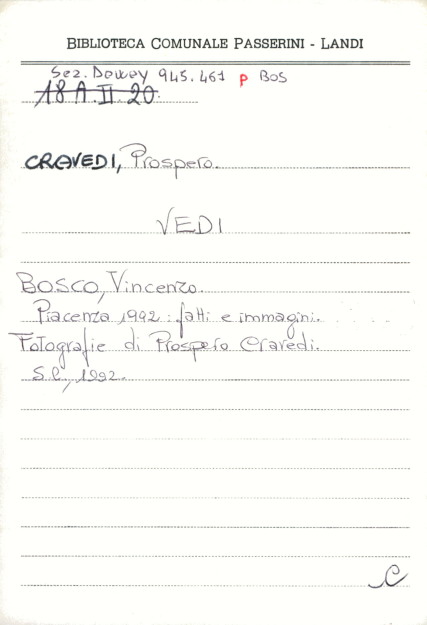 BIBLIOTECA COMUNALE PASSERINI - LANDI
Sez. Dewey 945.461 P BOS
18 A.II.20.
CRAVEDI, Prospero.
VEDI
BOSCO, Vincenzo.
Piacenza 1992: fatti e immagini.
Fotografie di Prospero Cravedi.
S.l., 1992.
C